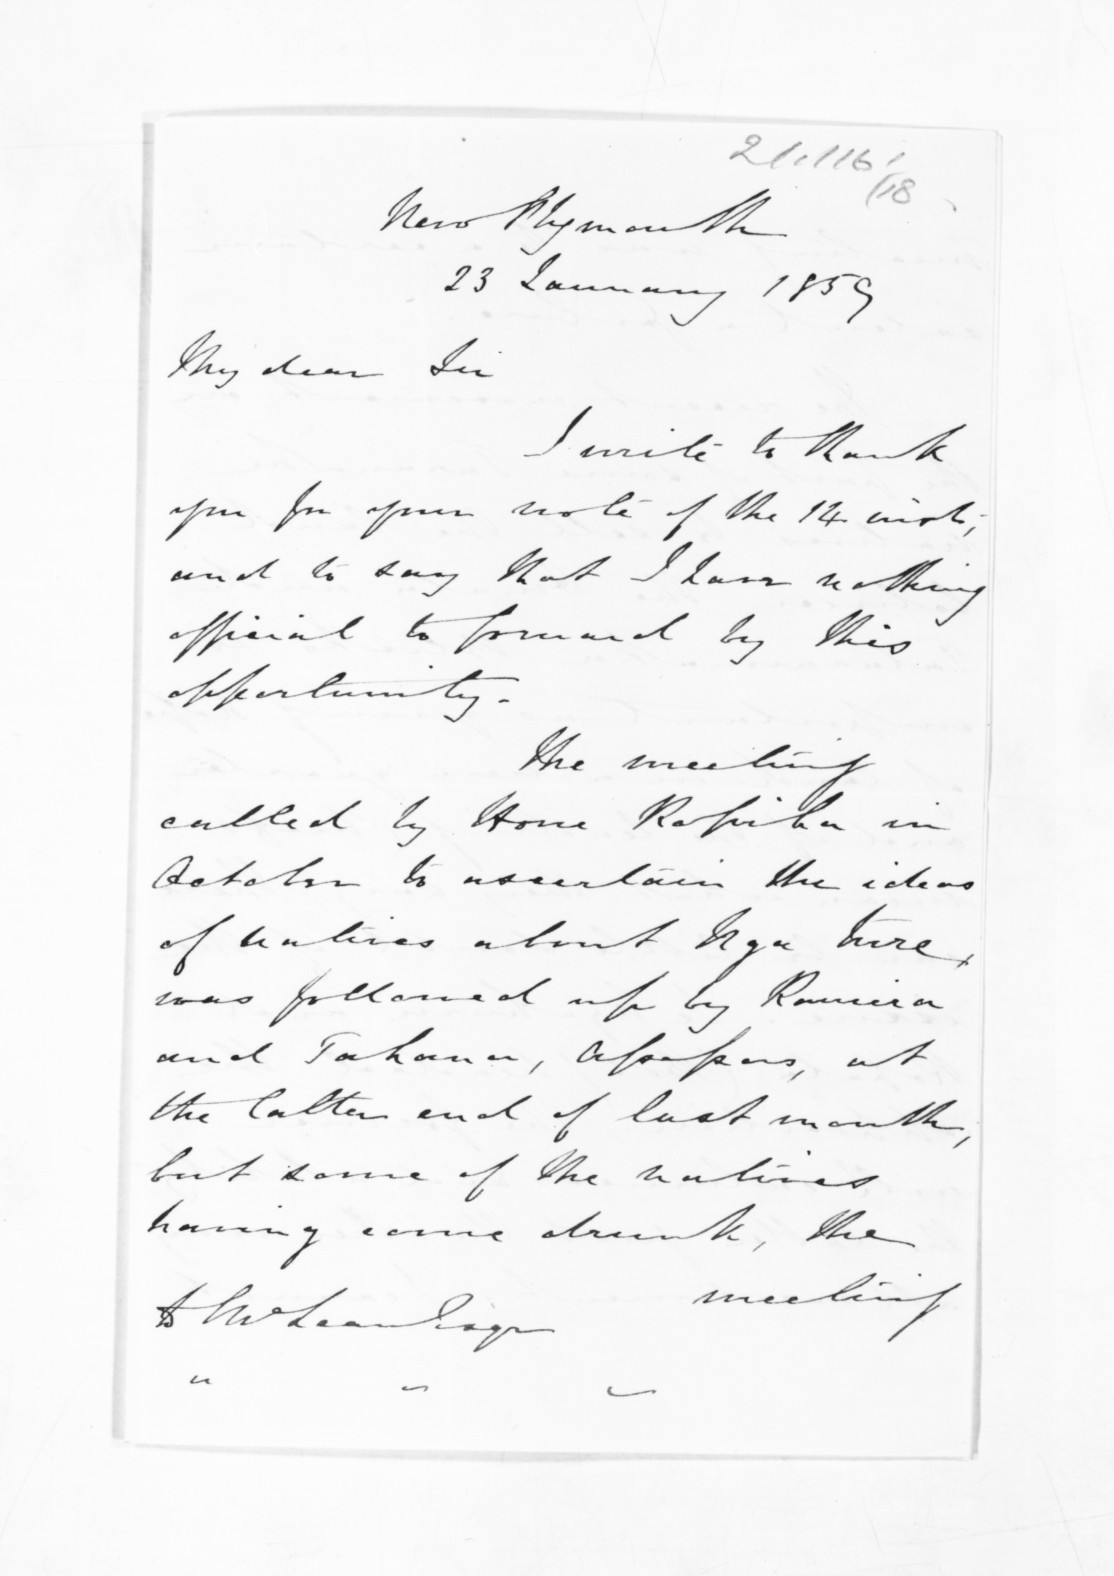 New Plymouth
23 January 1859
My dear Sir
I write to thank
you for your note of the 14 inst;
and to say that I have nothing
official to forward by this
opportunity.
The meeting
called by Hone Ropiha in
October to ascertain the ideas
of natives about Nga Ture,
was followed up by Rawiri
and Tahana, Assessors, at
the latter end of last month,
but some of the natives
having come drunk, the
meeting
D McLean Esqr
" " "